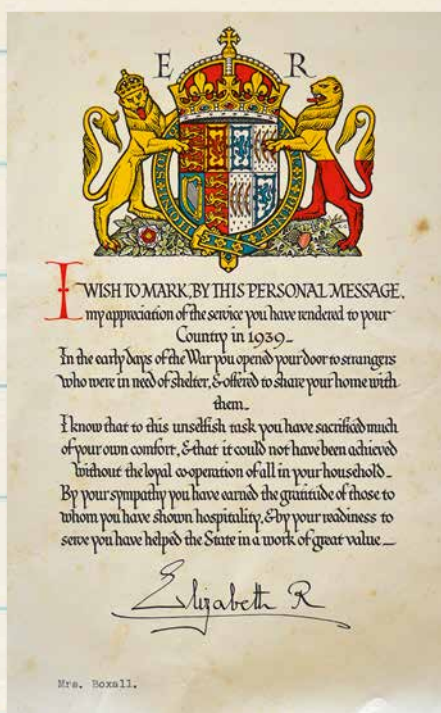 E R
I WISH TO MARK, BY THIS PERSONAL MESSAGE,
my appreciation of the service you have rendered to your
Country in 1939_
In the early days of the War you opened your door to strangers
who were in need of shelter, & offered to share your home with
them_
I know that to this unselfish task you have sacrificed much
of your own comfort, & that it could not have been achieved
without the loyal co-operation of all in your household_
By your sympathy you have earned the gratitude of those to
whom you have shown hospitality, & by your readiness to
serve you have helped the State in a work of great value_
Elizabeth R
Mrs. Boxall.